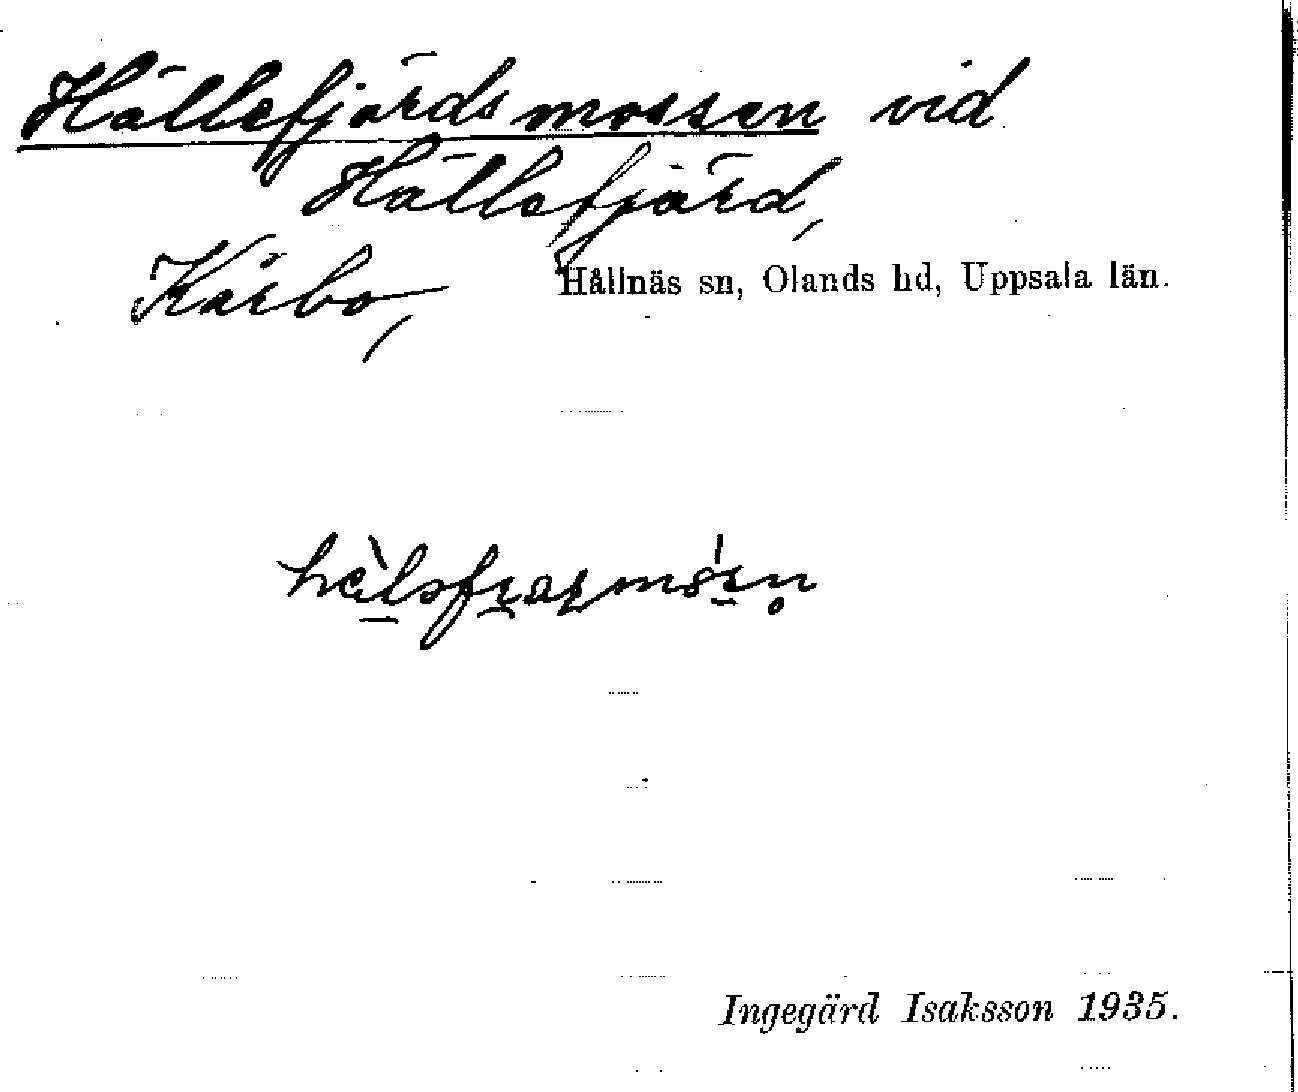 Hällefjärdsmossen vid
Hällefjärd,
Kärbo, Hållnäs sn, Olands hd, Uppsala län.
Ingegärd Isaksson 1935.